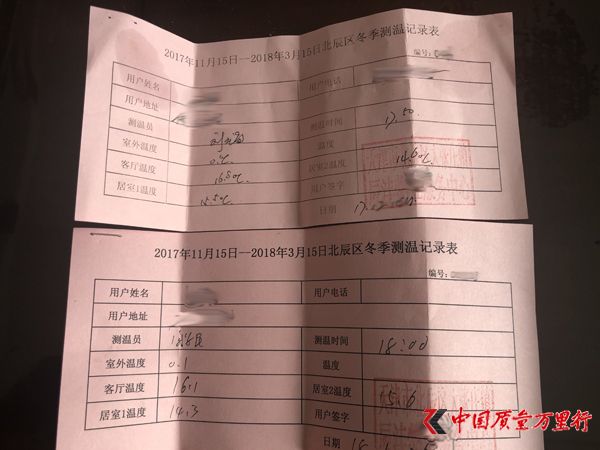 2017年11月15日--2018年3月15日北辰区冬季测温记录表
编号:
用户姓名 用户电话
用户地址
测温员 测温时间 17:50
室外温度 0℃ 温度
客厅温度 16.8℃ 居室2温度 14.6℃
居室1温度 15.5℃ 用户签字
日期
2017年11月15日--2018年3月15日北辰区冬季测温记录表
编号:
用户姓名 用户电话
用户地址
测温员 测温时间 18:00
室外温度 0.1 温度
客厅温度 16.1 居室2温度 15.6
居室1温度 14.3 用户签字
日期
中国质量万里行